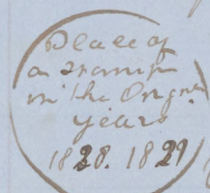 Place of
a stamp
in the
years
1828. 1829